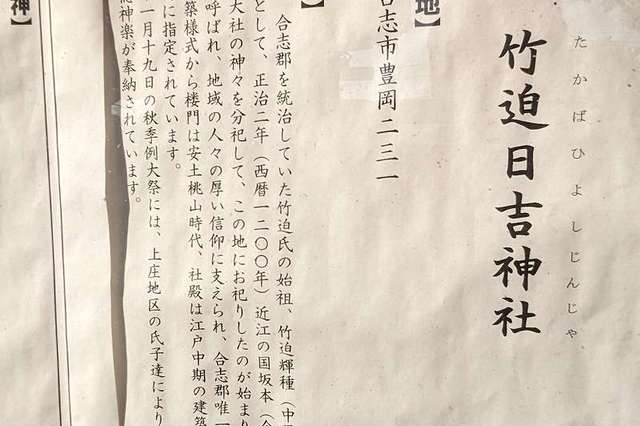 たかばひよしじんじゃ
竹迫日吉神社
地】
合志市豊岡二三一
】
合志郡を統治していた竹迫氏の始祖、竹迫輝種（中
として、正治二年（西暦一二〇〇年）近江の国坂本（
大社の神々を分祀して、この地にお祀りしたのが始まり
呼ばれ、地域の人々の厚い信仰に支えられ、合志郡唯一
築様式から楼門は安土桃山時代、社殿は江戸中期の建築
に指定されています。
一月十九日の秋季例大祭には、上庄地区の氏子達により
神楽が奉納されています。
神